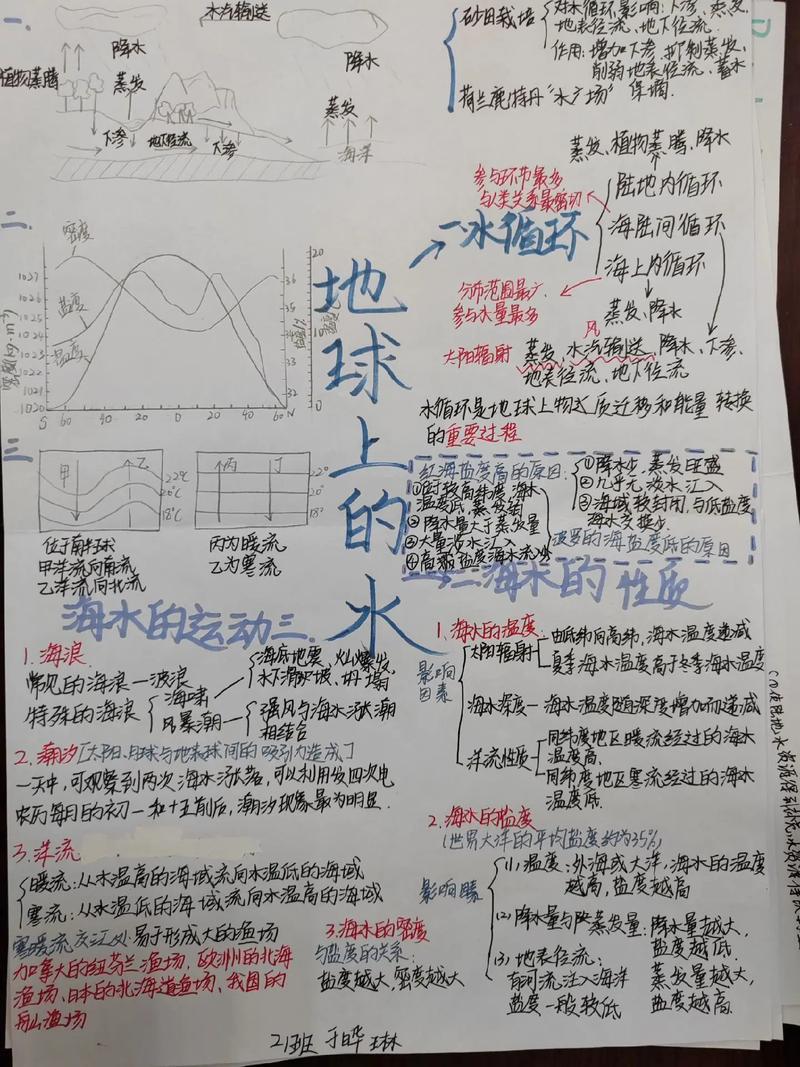 一、
水汽输送
降水
降水
植物蒸腾
蒸发
蒸发
下渗
地下径流
下渗
海洋
砂田栽培
对水循环影响:下渗、蒸发、
地表径流、地下径流.
作用:增加下渗,抑制蒸发,
削弱地表径流、蓄水
保墒.
荷兰鹿特丹“水广场”
蒸发、植物蒸腾、降水
参与环节最多
与人类关系最密切
陆地内循环
一水循环
海陆间循环
海上内循环
分布范围最广
参与水量最多
蒸发、降水
风
太阳辐射
蒸发、水汽输送、降水、下渗、
地表径流、地下径流
水循环是地球上物质迁移和能量转换
的重要过程
二.
密度
盐度
温度
密度(kg·m⁻³)
1027
1026
1025
1024
1023
1022
1021
1020
36
35
34
33
20
10
0
S 60 40 20 0 20 40 60 N
地球上的水
三
甲
乙
22℃
20℃
18℃
丙
丁
22°
20°
18°
位于南半球
甲洋流向南流
乙洋流向北流
丙为暖流
乙为寒流
红海盐度高的原因:
①降水少,蒸发旺盛
②几乎无淡水汇入
③海域较封闭,与低盐度
海水交换少.
①时较高纬度,海水
温度低,蒸发弱
②降水量大于蒸发量
③大量淡水汇入
波罗的海盐度低的原因
二海水的性质
海水的运动三.
1.海浪.
常见的海浪—波浪
特殊的海浪
海啸
海底地震、火山爆发,
水下滑坡坡、坍塌
风暴潮
强风与海水涨潮
相结合
2.潮汐[太阳、月球与地表球间的吸引力造成]
一天中,可观察到两次海水涨落,可以利用发四次电
农历每月的初一和十五前后,潮汐现象最为明显.
3.洋流
暖流:从水温高的海域流向水温低的海域
寒流:从水温低的海域流向水温高的海域
寒暖流交汇处:易于形成大的渔场
加拿大的纽芬兰渔场、欧洲的北海
渔场、日本的北海道渔场、我国的
舟山渔场
1.海水的温度
影响
因素
太阳辐射
由低纬向高纬,海水温度递减
夏季海水温度高于冬季海水温度
海水深度—海水温度随深度增加而递减
洋流性质
同纬度地区暖流经过的海水
温度高.
同纬度地区寒流经过的海水
温度低.
2.海水的盐度
(世界大洋的平均盐度约为35‰)
(1)温度:外海或大洋,海水的温度
越高,盐度越高
(2)降水量与蒸发量:降水量越大,
盐度越低.
蒸发量越大,
盐度越高.
(3)地表径流:
有河流注入海洋
盐度一般较低
3.海水的密度
与盐度的关系:
盐度越大,密度越大
21班